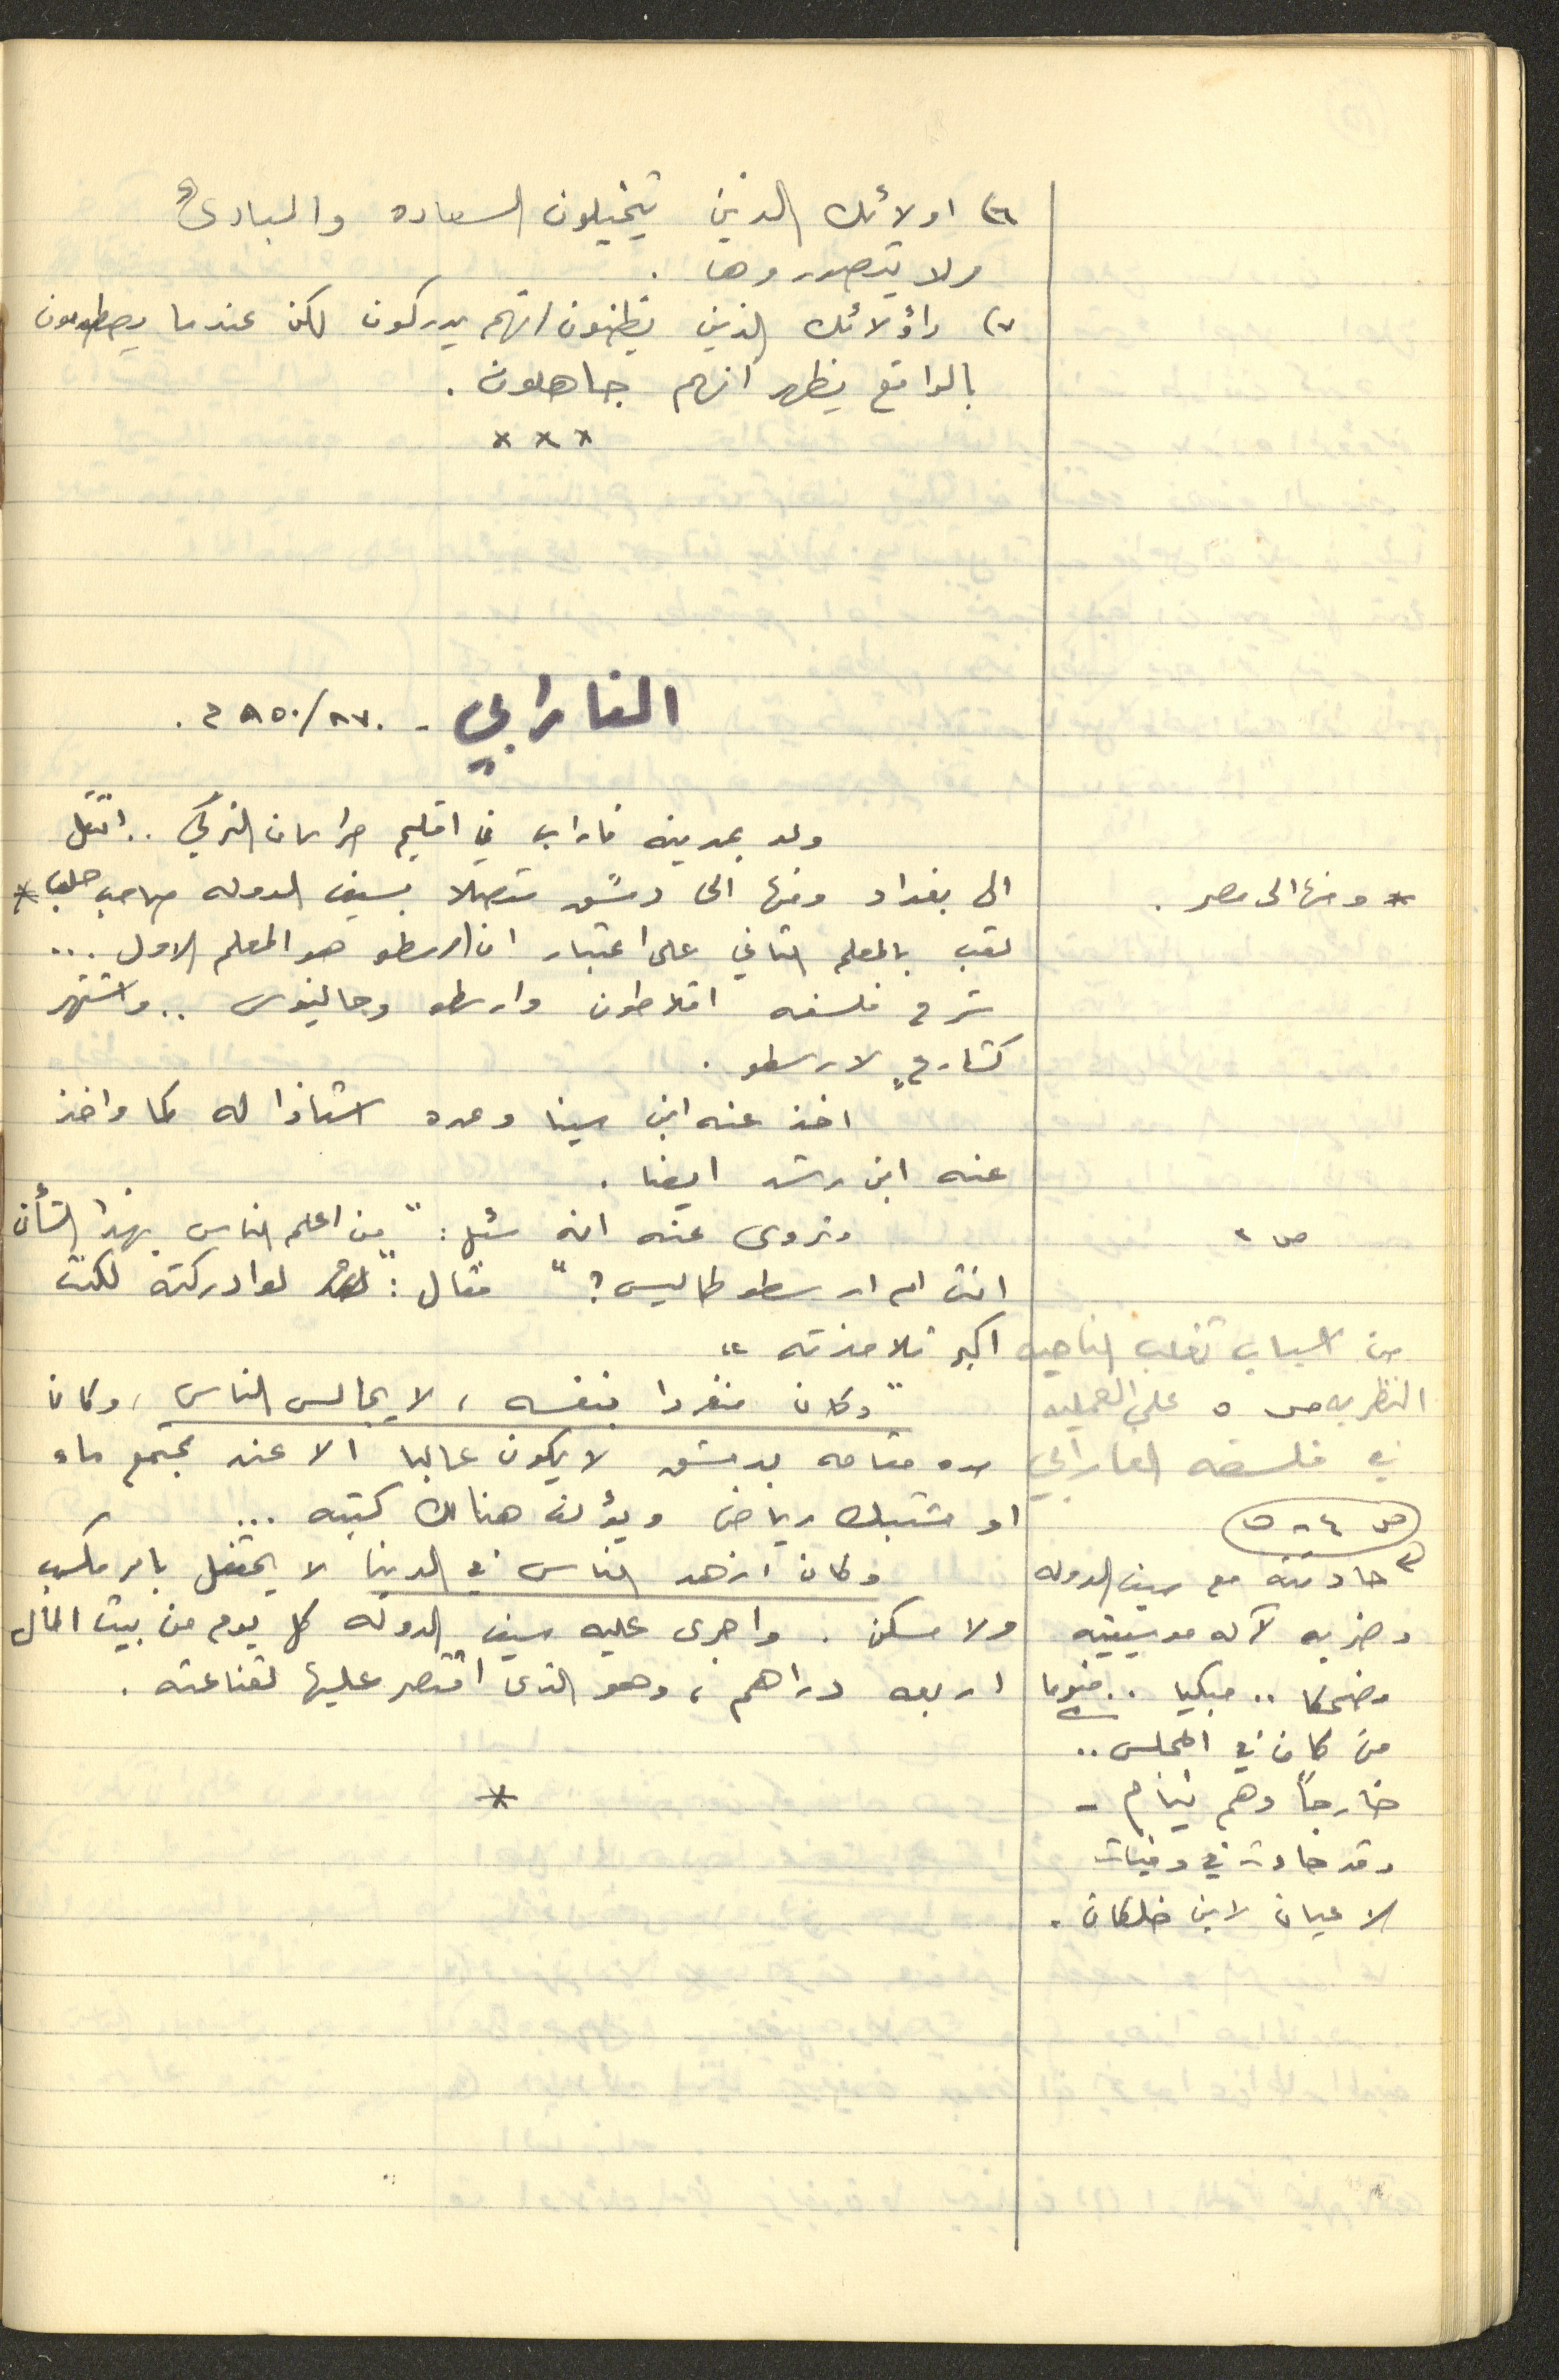 ٦) اولائك الذين يتخيلون السعاده والمبادئ
ولا يتصوروها .
٧) واؤلائك الذين يظنون انهم يدركون لكن عندما يصطدمون
بالواقع يظهر انهم جاهلون .
* * *
الفارابي - ٨٧٠/٩٥٠ م .
ولد بمدينه فاراب في اقليم خراسان التركي .. انتقل
الى بغداد ومنها الى دمشق متصلا بسيف الدوله صاحب حلب *
* ومنها الى مصر .
لقب بالمعلم الثاني على اعتبار ان ارسطو هو المعلم الاول ...
شرح فلسفه افلاطون وارسطو وجالينوس .. واشتهر
كشارحٍ لارسطو .
اخذ عنه ابن سينا وعده استاذا له كما واخذ
عنه ابن رشد ايضا .
وتروى عنه انه سئل : " من اعلم الناس بهذا الشأن
انت ام ارسطوطاليس ؟ " فقال : " لو ادركته لكنت
اكبر تلامذته "
" وكان منفردا بنفسه ، لا يجالس الناس ، وكان
مده مقامه بدمشق لا يكون غالبا الا عند مجتمع ماء
او مشتبك رياض ويؤلف هناك كتبه ...
وكان ازهد الناس في الدنيا لا يحتفل بامر مكسب
ولا مسكن . واجرى عليه سيف الدوله كل يوم من بيت المال
اربعه دراهم ، وهو الذى اقتصر عليها لقناعته .
*
ص ٢
من اسباب تغلب الناحيه
النظريه ص ٥ على العمليه
في فلسفه الفارابي
ص ٤ - ٥
حادثته مع سيف الدوله
وضربه لآله موسيقيه
مضحكا .. مبكيا .. منوما
من كان في المجلس ..
خارجاً وهم نيام -
وقد جاءت في وفيات
الاعيان لابن خلكان .